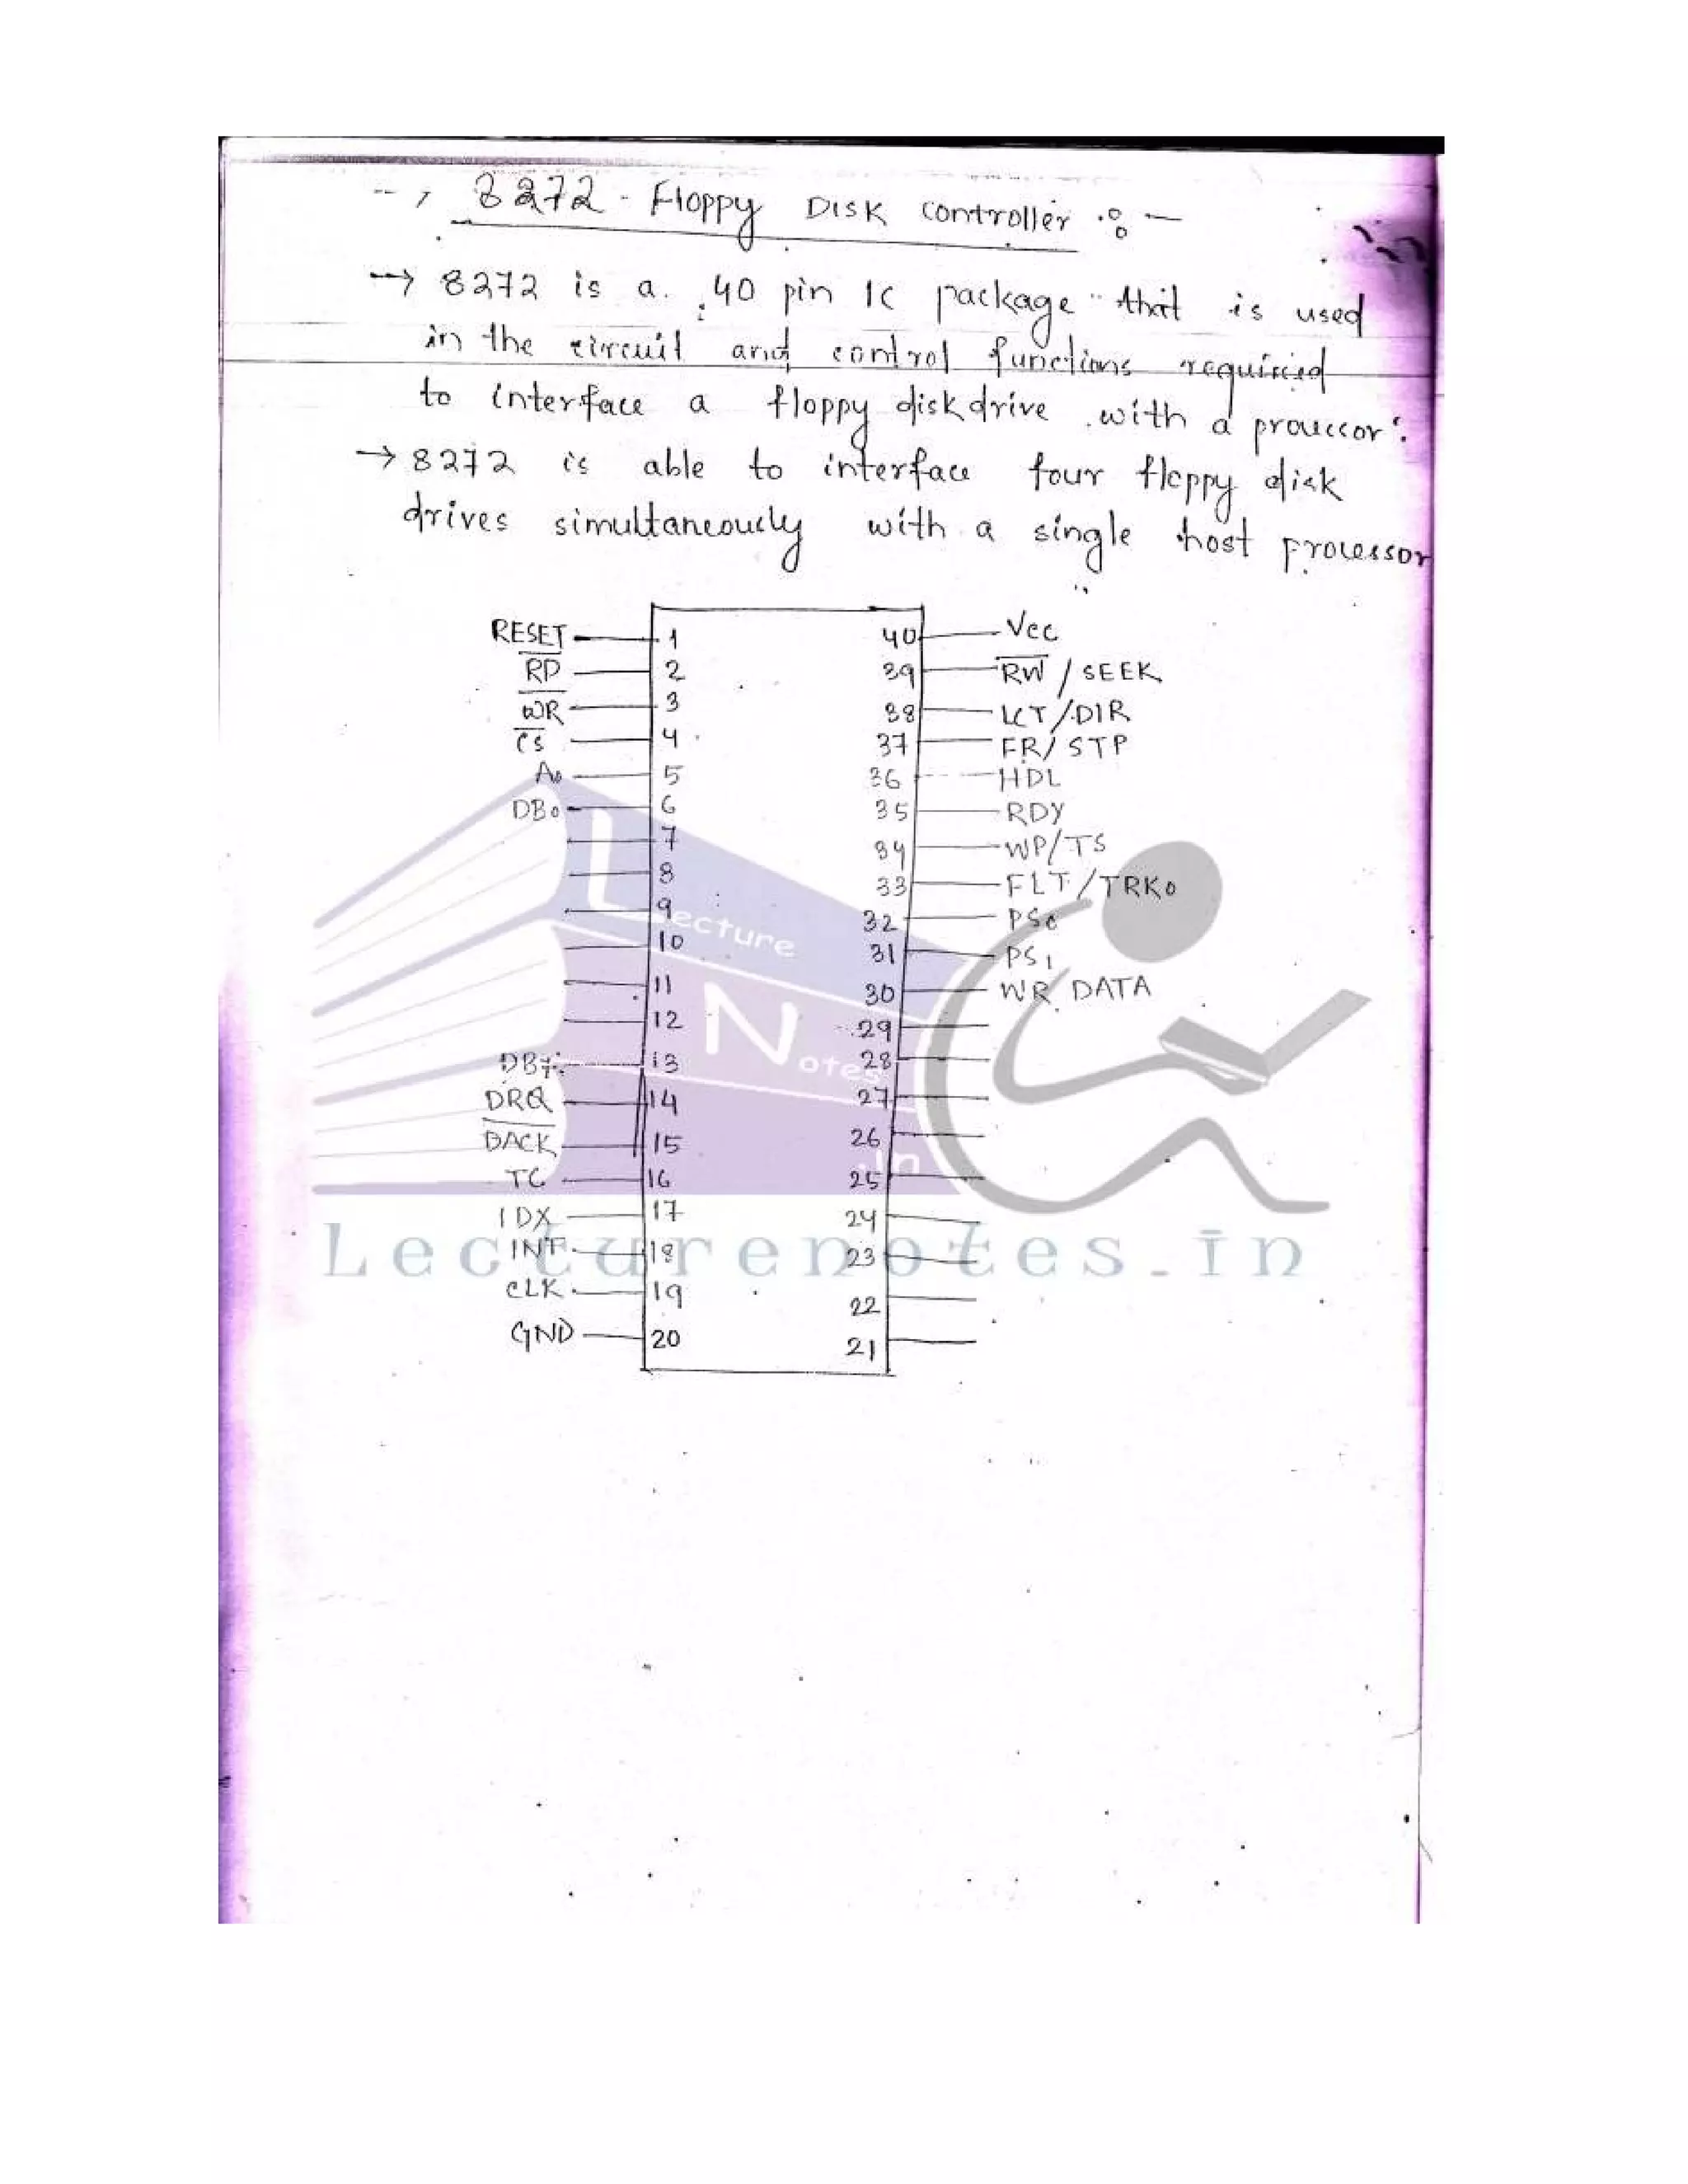 8272 - Floppy DISK controller :-
→ 8272 is a 40 pin IC package that is used
in the circuit and control functions required
to interface a floppy disk drive with a processor.
→ 8272 is able to interface four floppy disk
drives simultaneously with a single host processor
RESET 1 40 Vcc
RD 2 39 RW / SEEK
WR 3 38 LCT / DIR
CS 4 37 FR / STP
A0 5 36 HDL
DB0 6 35 RDY
7 34 WP/TS
8 33 FLT / TRK0
9 32 PS0
10 31 PS1
11 30 WR DATA
12 29
DB7 13 28
DRQ 14 27
DACK 15 26
TC 16 25
IDX 17 24
INT 18 23
CLK 19 22
GND 20 21
Lecture
Notes
.in
Lecturenotes.in